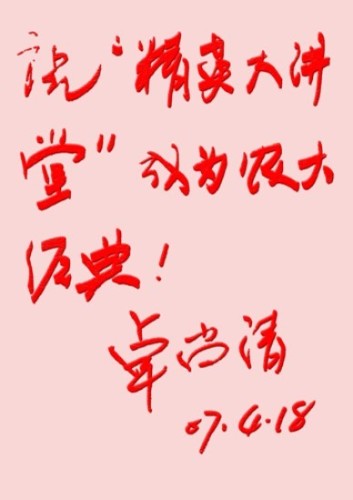 祝“精英大讲
堂”成为农大
经典！
卓尚清
07.4.18